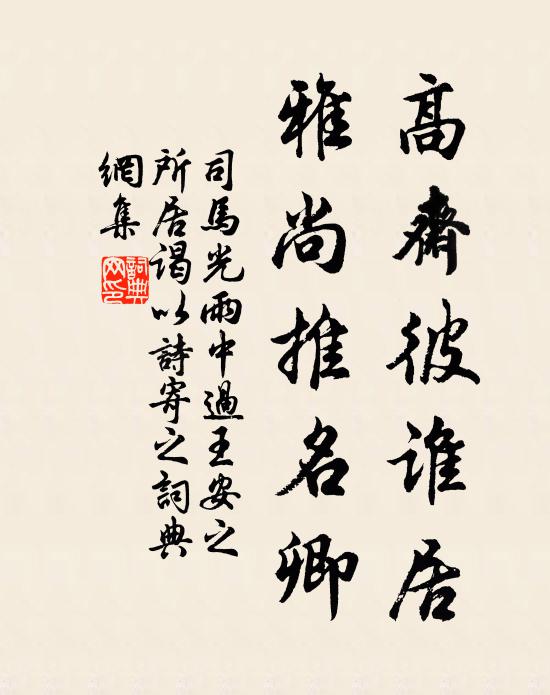 高齋彼誰居
雅尚推名卿
司馬光雨中過王安之
所居謁以詩寄之詞典
網集
詞典
网印